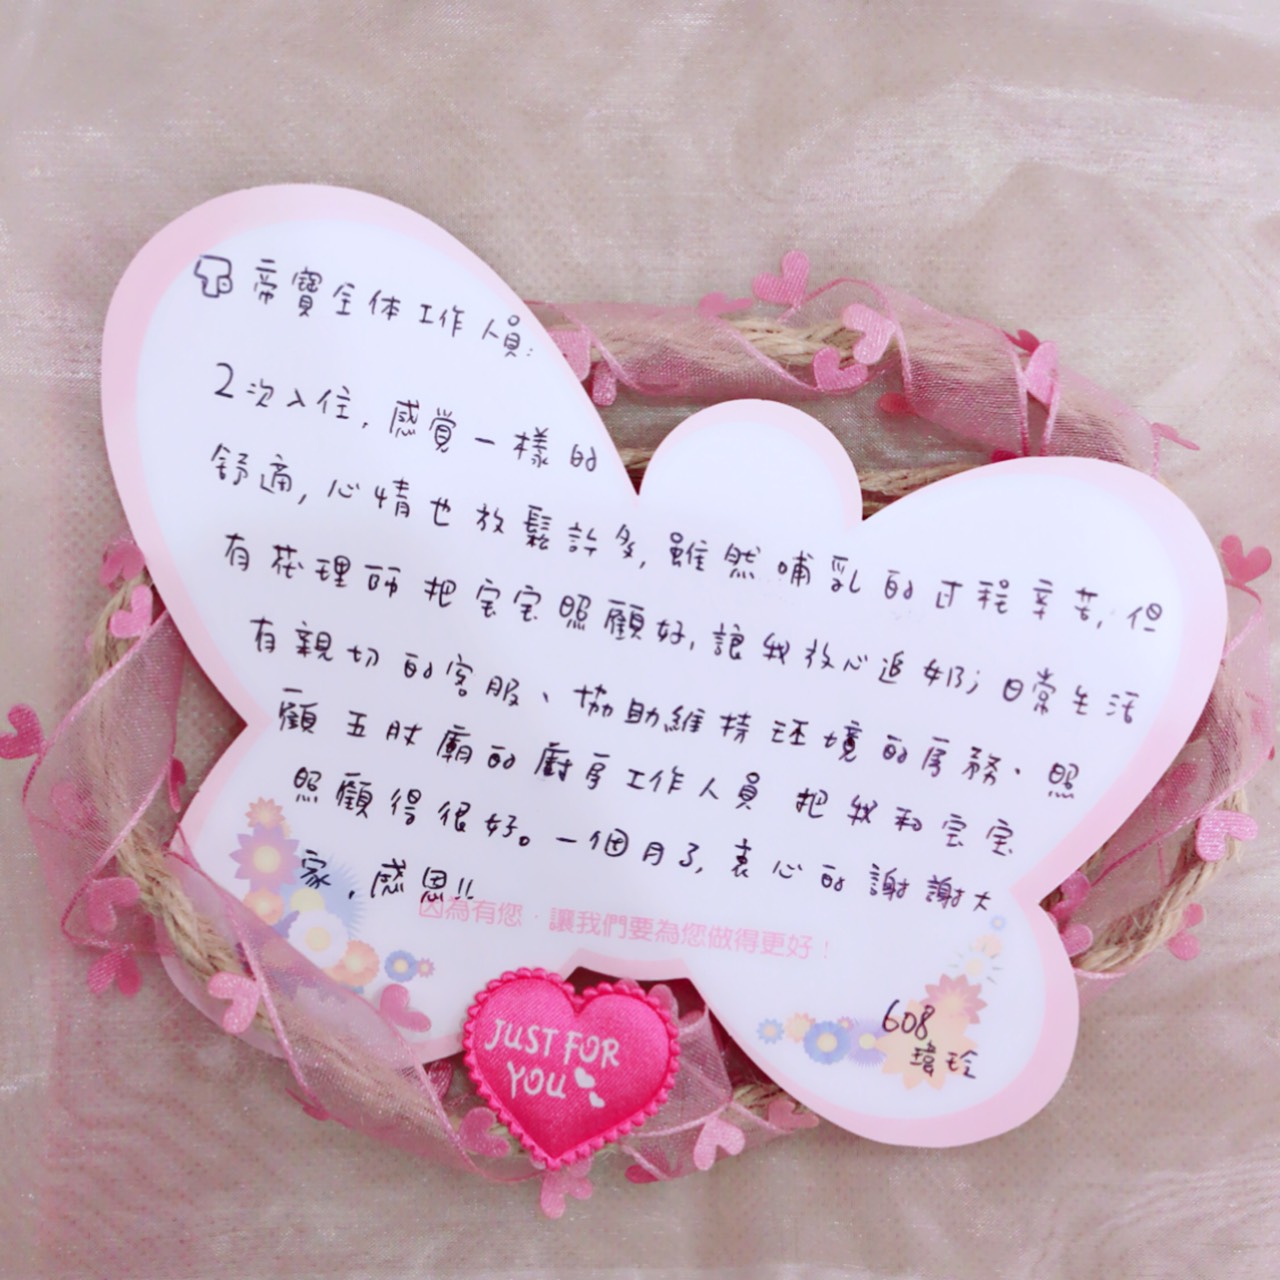 To 帝寶全体工作人員:
2次入住,感覺一樣的
舒適,心情也放鬆許多,雖然哺乳的过程辛苦,但
有花理師把宝宝照顧好,讓我放心追奶;日常生活
有親切的客服、協助維持环境的房務、照
顧五肚廟的廚房工作人員 把我和宝宝
照顧得很好。一個月了,衷心的謝謝大
家,感恩!!
因為有您,讓我們要為您做得更好!
608
瑋玲
JUST FOR
YOU